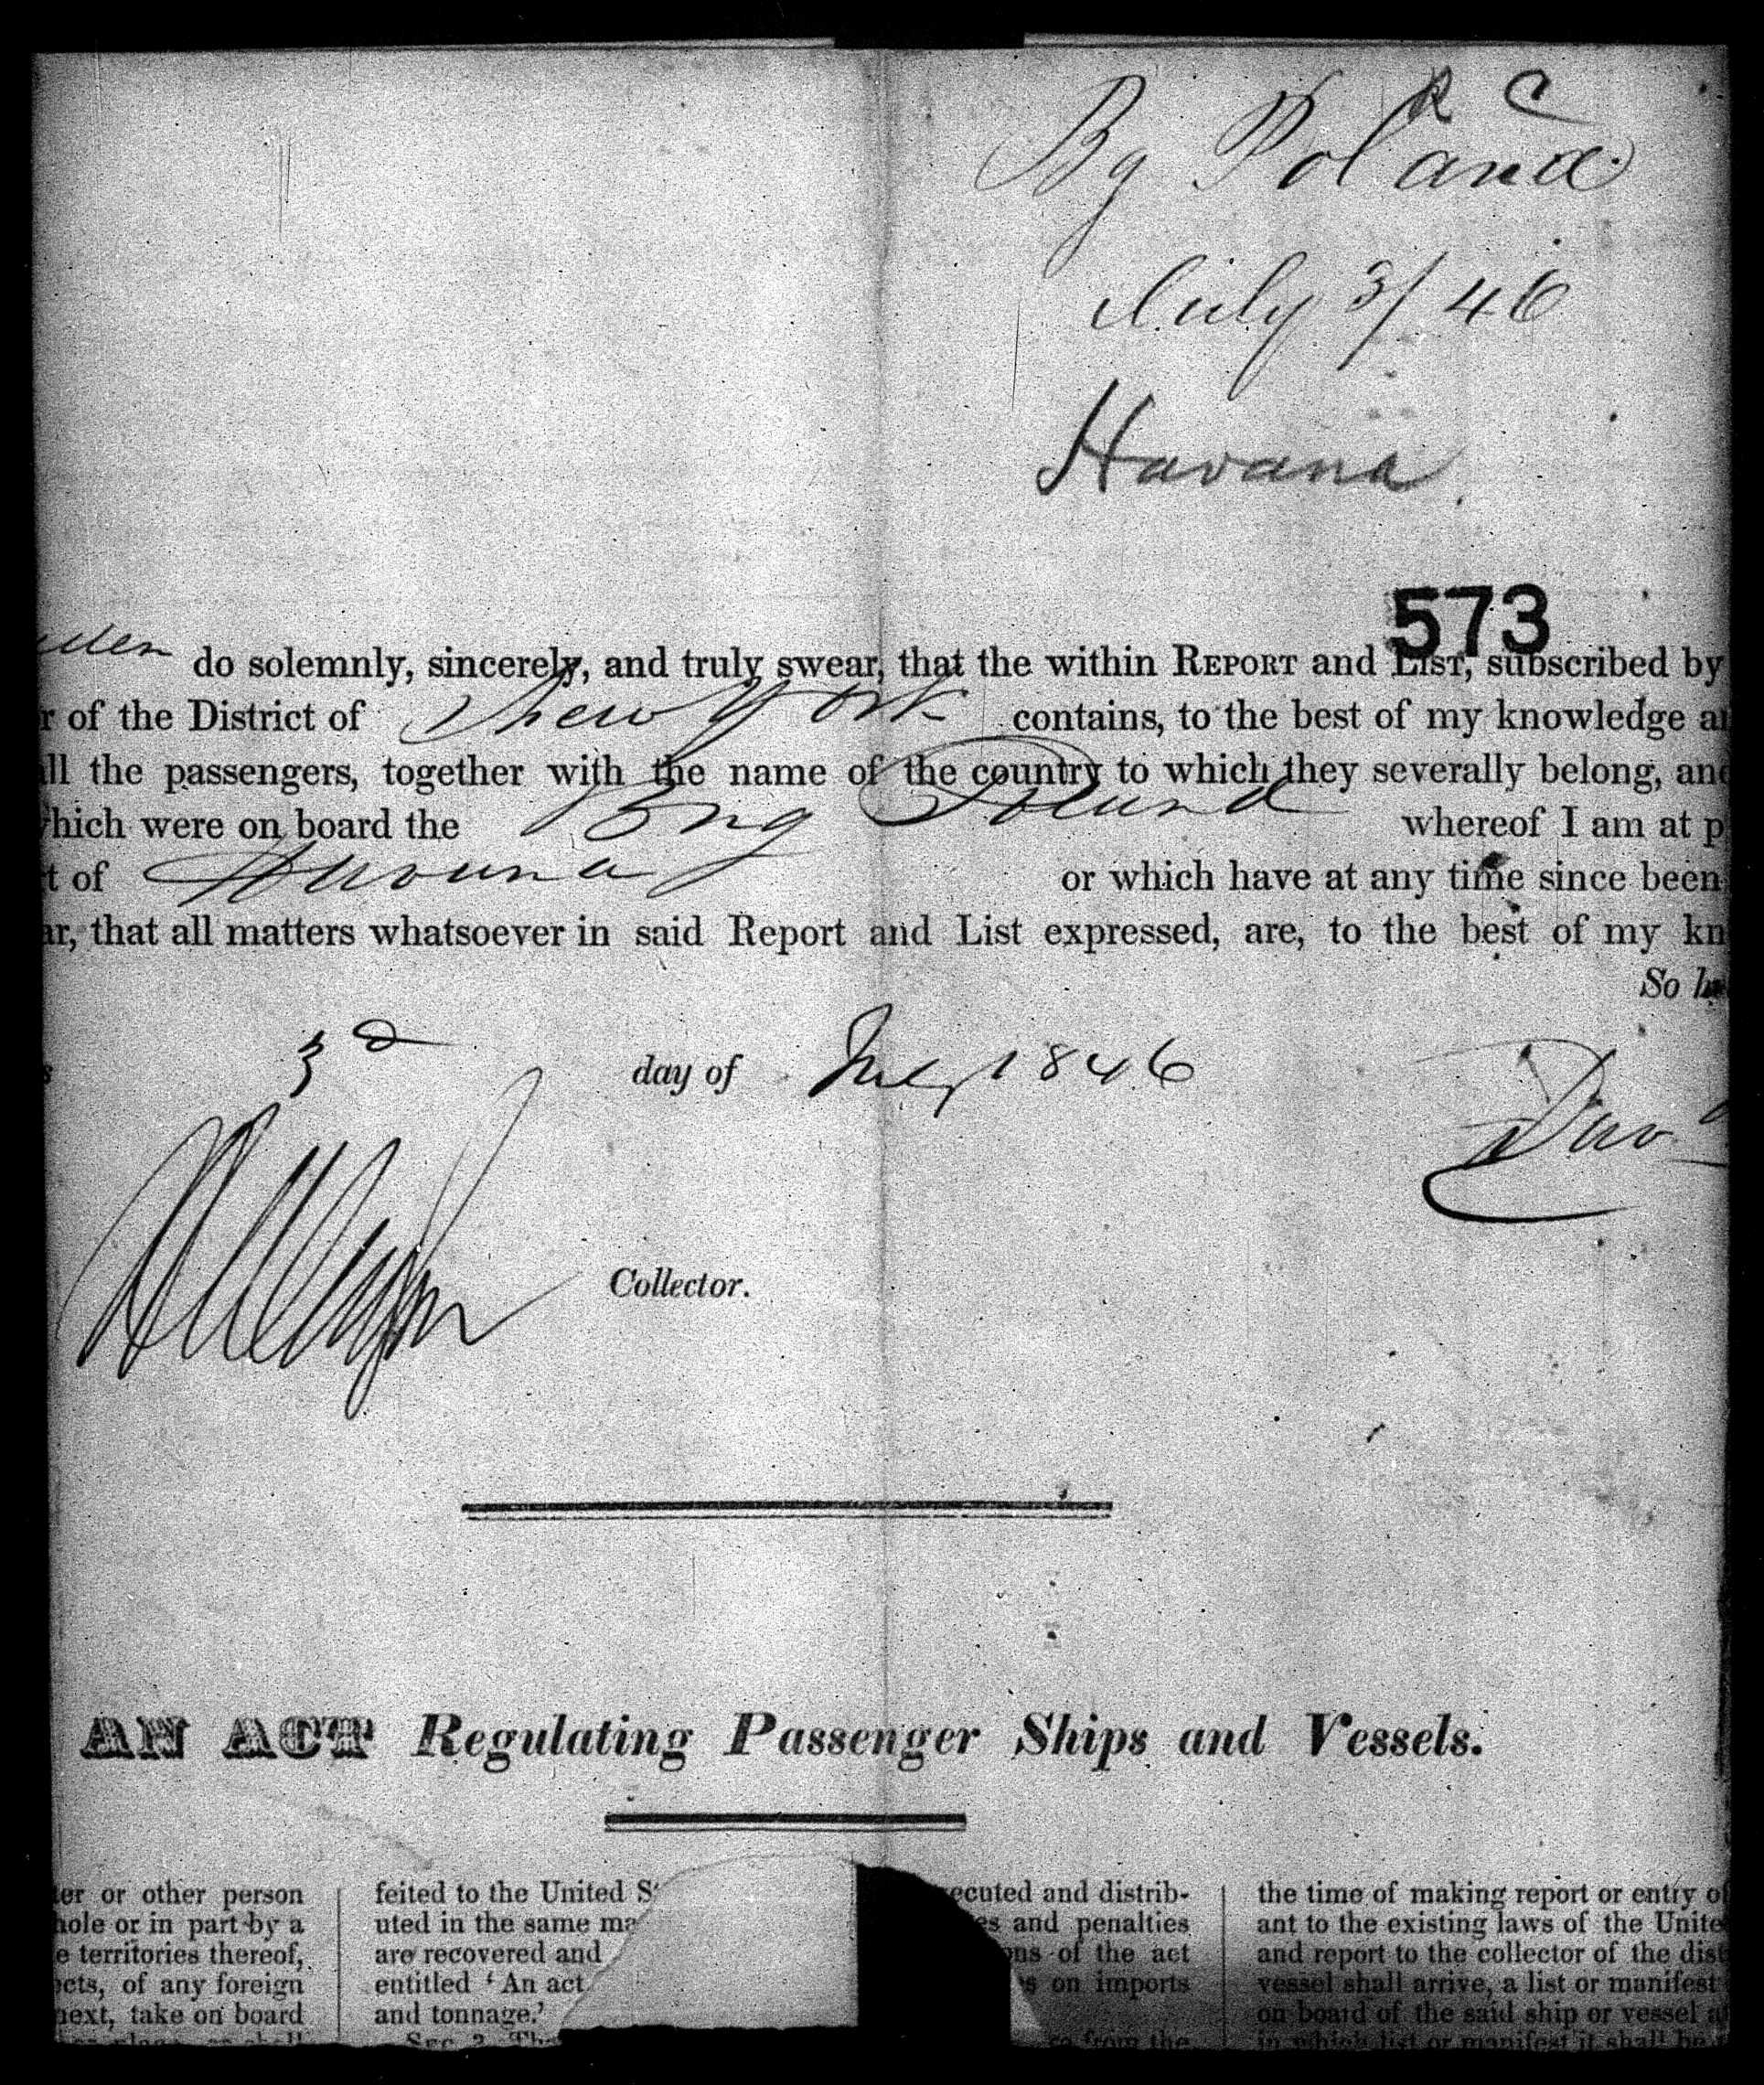 R C
Bg Poland
July 3/46
Havana
573
do solemnly, sincerely, and truly swear, that the within REPORT and LIST, subscribed by
r of the District of New York contains, to the best of my knowledge a
ll the passengers, together with the name of the country to which they severally belong, an
hich were on board the Brig Poland whereof I am at p
t of Havana or which have at any time since been
r, that all matters whatsoever in said Report and List expressed, are, to the best of my kn
So he
3d day of July 1846
Dav
Collector.
AN ACT Regulating Passenger Ships and Vessels.
er or other person
hole or in part by a
e territories thereof,
cts, of any foreign
next, take on board
feited to the United S
uted in the same ma
are recovered and
entitled ‘An act
and tonnage.’
Sec. 2. The
ecuted and distrib-
es and penalties
ns of the act
s on imports
from the
the time of making report or entry o
ant to the existing laws of the Unite
and report to the collector of the dist
vessel shall arrive, a list or manifest
on board of the said ship or vessel a
in which list or manifest it shall be